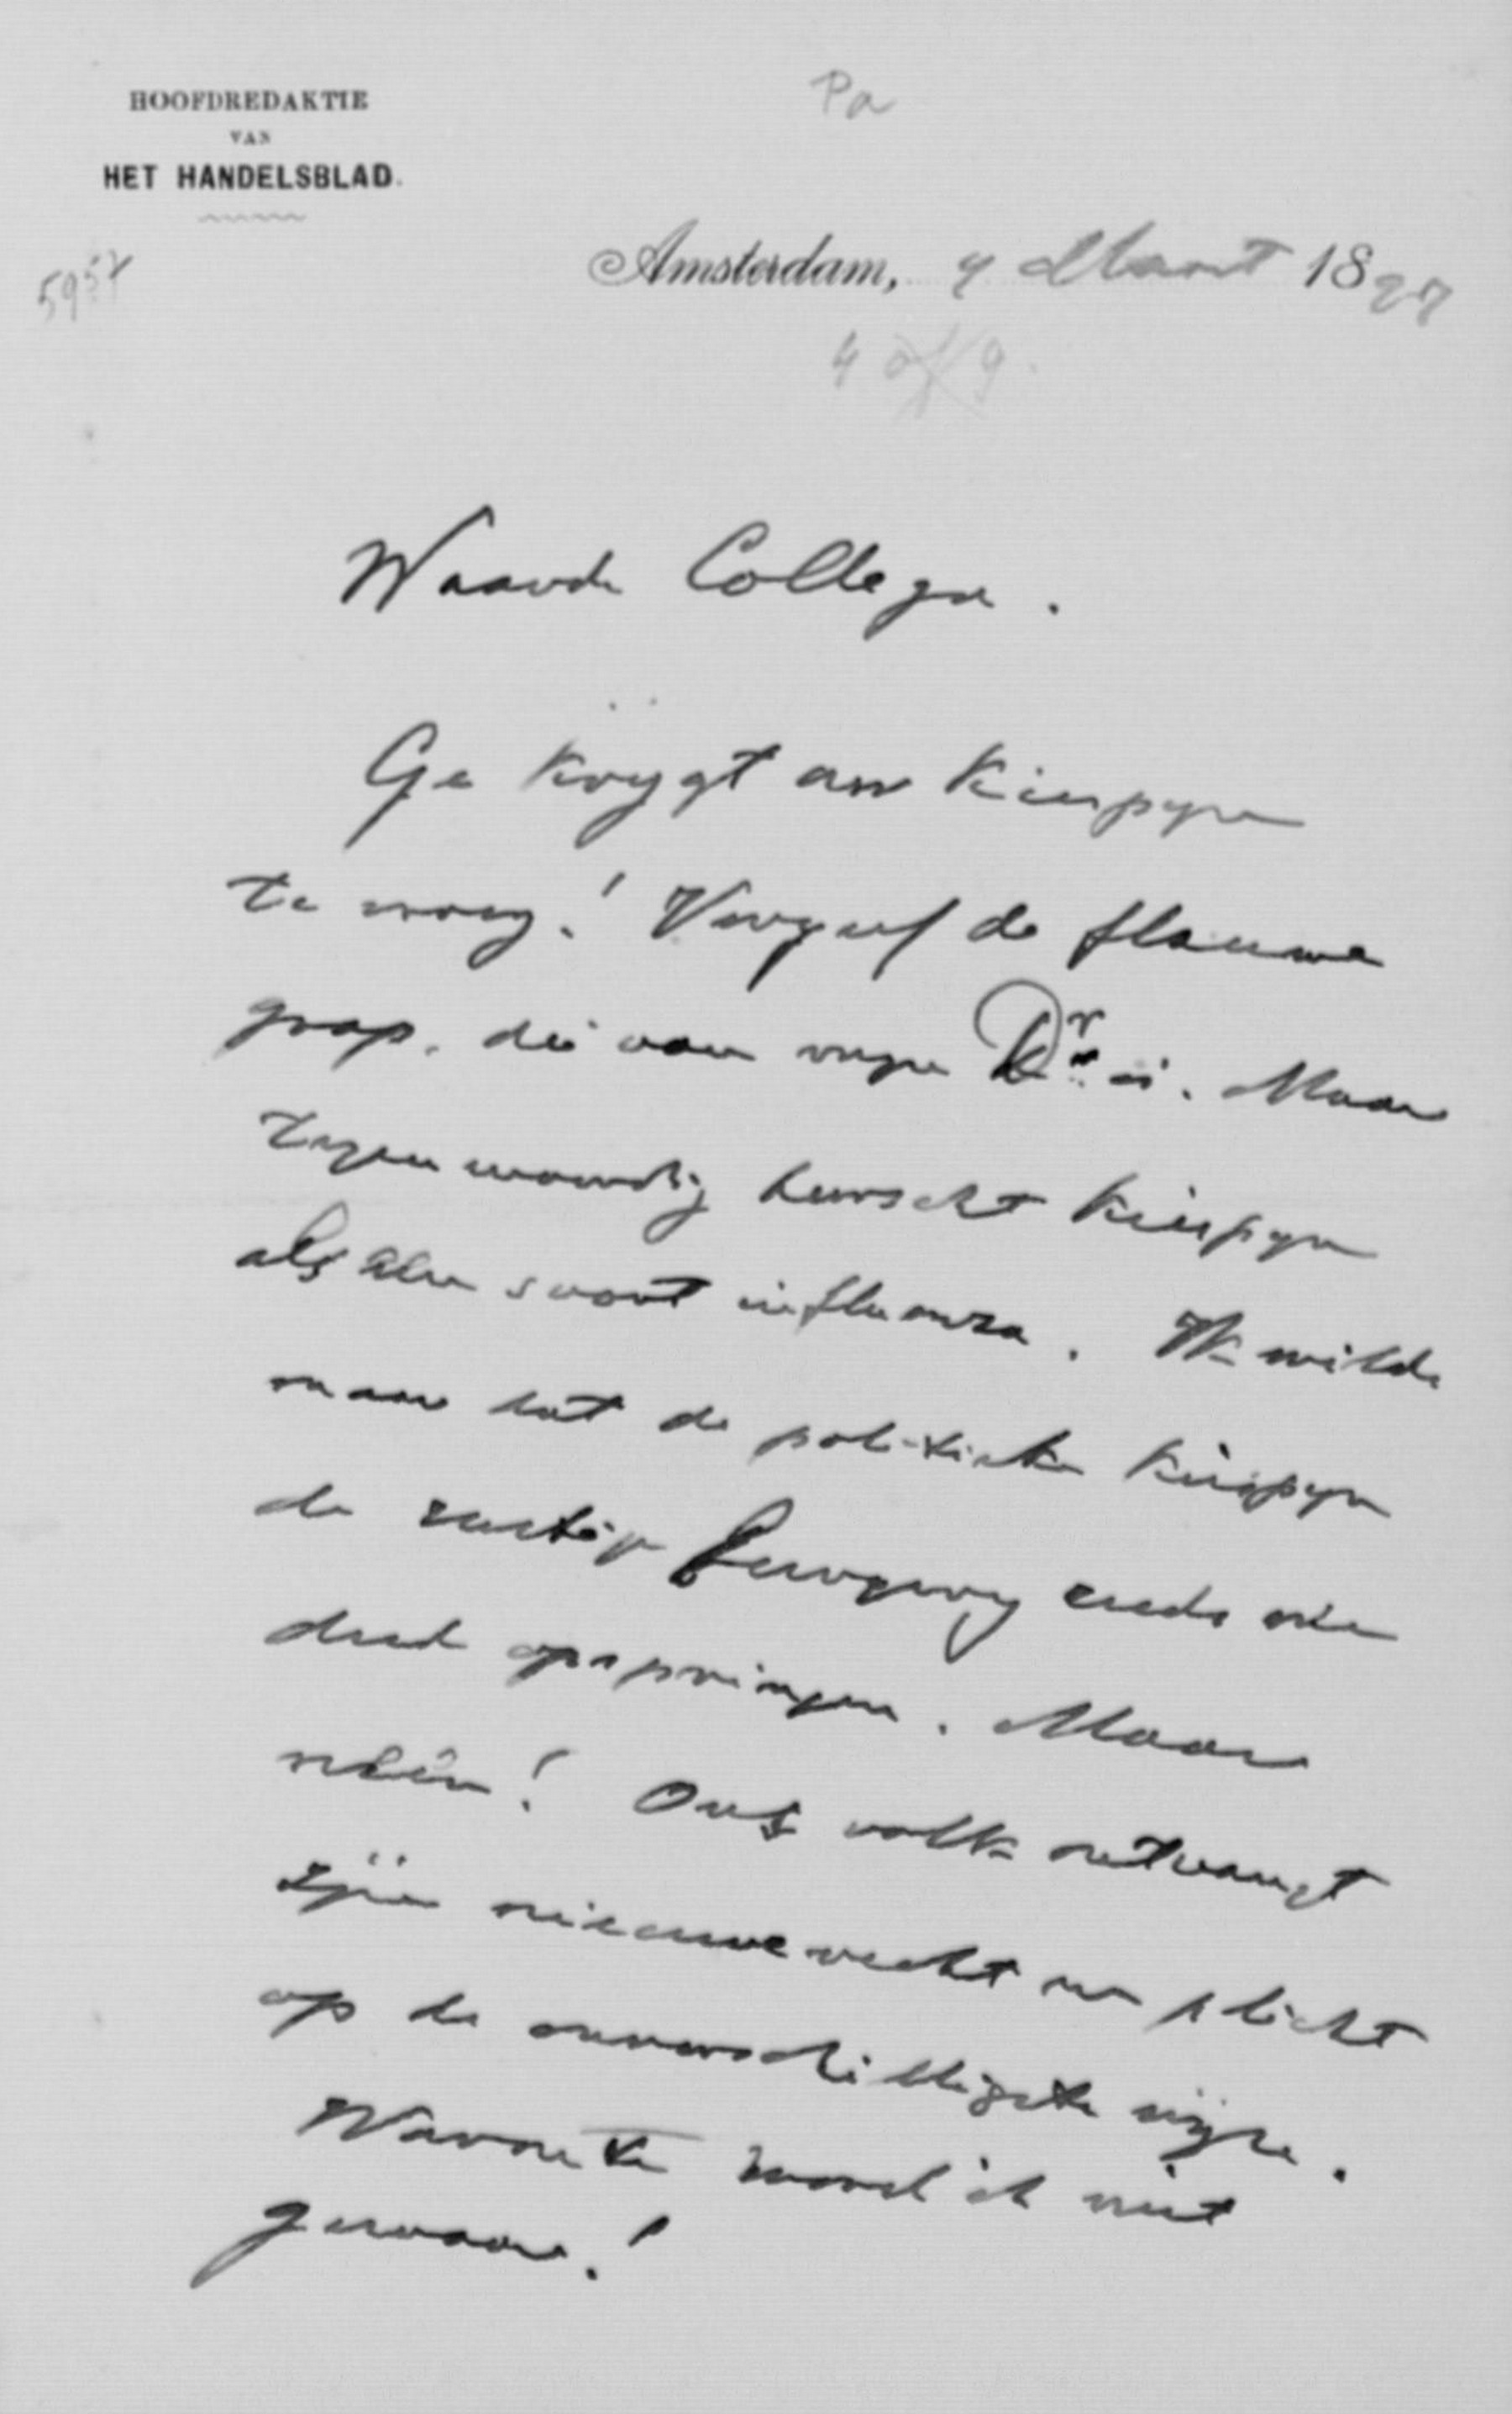 Pa
HOOFDREDAKTIE
VAN
HET HANDELSBLAD.
5957
Amsterdam, 4 Maart 1897
4 of 9.
Waarde Collega.
Ge krijgt uw Kiespyn
te vroeg! Vergeef de flauwe
grap, die van myn Dr is. Maar
tegenwoordig heerscht kiespyn
als een soort influenza. Ik wilde
maar dat de politieke kiespyn
de rustige burgery eens
deed opspringen. Maar
neen! Ons volk ontvangt
zijn nieuwe recht en plicht
op de onverschilligste wijze.
Warmte word ik niet
gewaar!